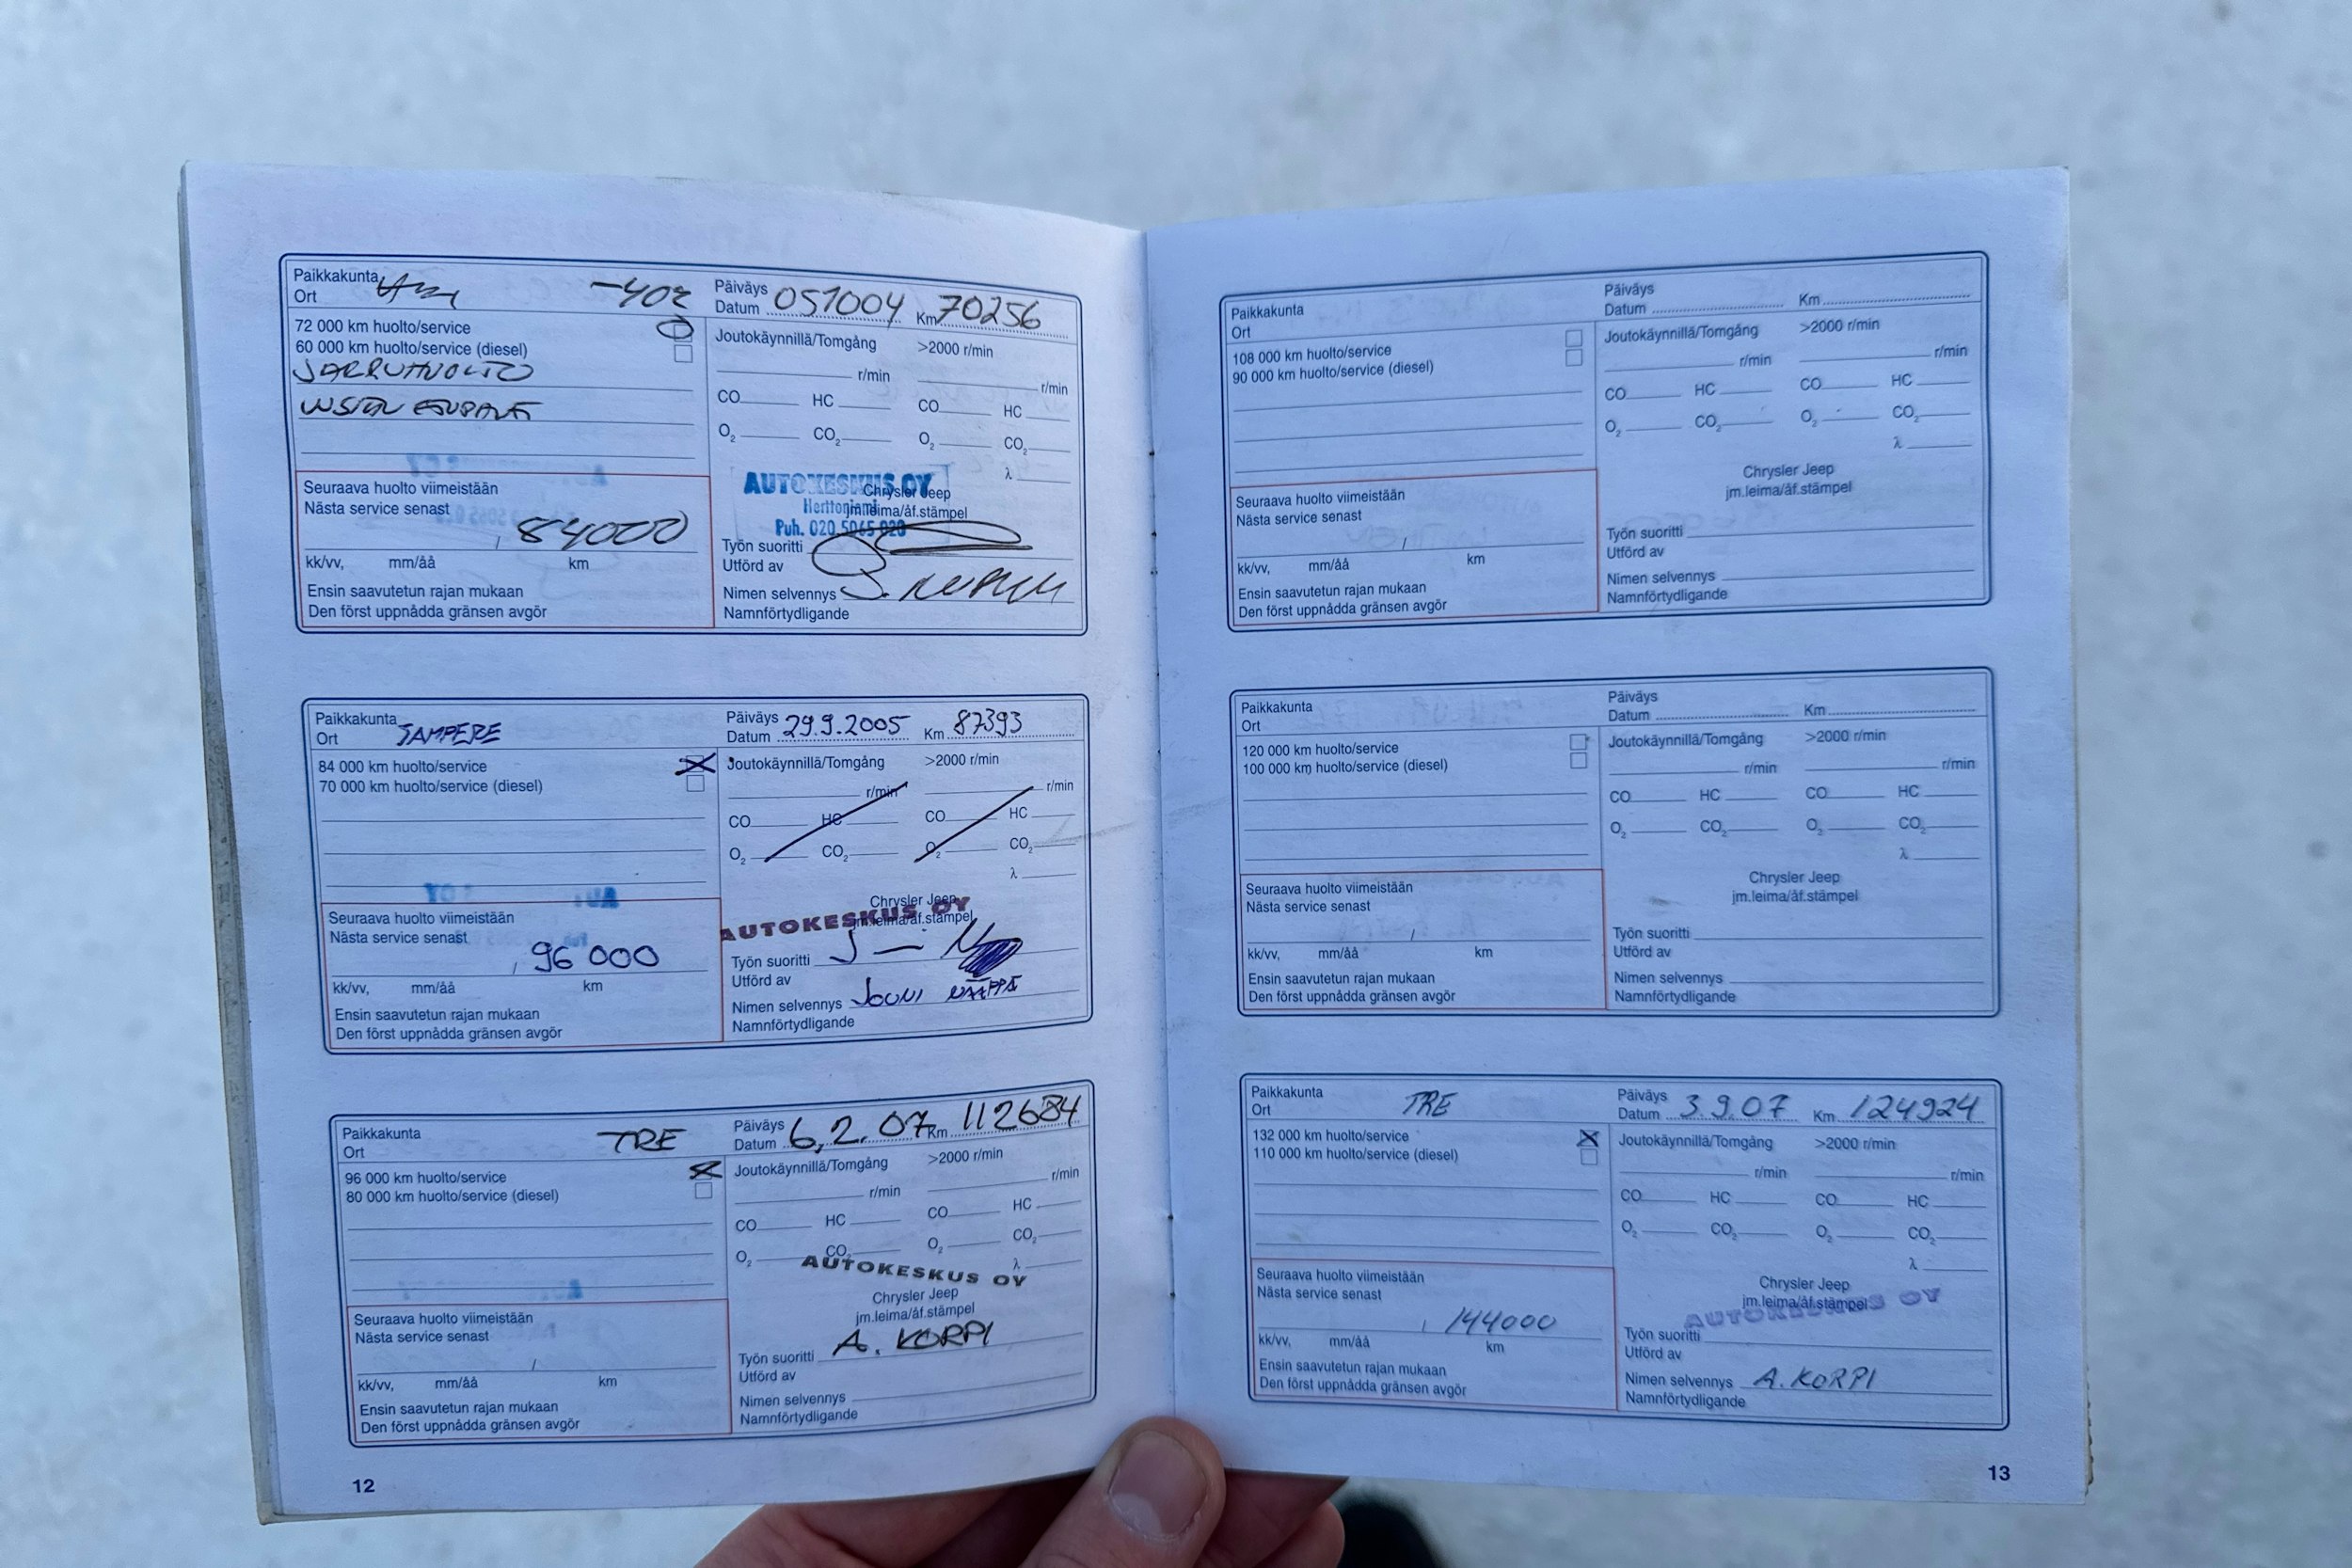 Paikkakunta
Ort
-402
Päiväys
Datum 051004 Km 70256
72 000 km huolto/service
60 000 km huolto/service (diesel)
JARRUHUOLTO
Joutokäynnillä/Tomgång >2000 r/min
r/min r/min
CO HC CO HC
O2 CO2 O2 CO2
λ
Seuraava huolto viimeistään
Nästa service senast
, 84000
kk/vv, mm/åå km
Ensin saavutetun rajan mukaan
Den först uppnådda gränsen avgör
AUTOKESKUS OY
Herttoniemi
Puh. 020 5065 020
Chrysler Jeep
jm.leima/åf.stämpel
Työn suoritti
Utförd av
Nimen selvennys
Namnförtydligande
Paikkakunta
Ort TAMPERE
Päiväys
Datum 29.9.2005 Km 87393
84 000 km huolto/service
70 000 km huolto/service (diesel)
Joutokäynnillä/Tomgång >2000 r/min
r/min r/min
CO HC CO HC
O2 CO2 O2 CO2
λ
Seuraava huolto viimeistään
Nästa service senast
, 96 000
kk/vv, mm/åå km
Ensin saavutetun rajan mukaan
Den först uppnådda gränsen avgör
Chrysler Jeep
AUTOKESKUS OY
jm.leima/åf.stämpel
Työn suoritti
Utförd av
Nimen selvennys JOUNI
Namnförtydligande
Paikkakunta
Ort TRE
Päiväys
Datum 6,2.07 Km 112684
96 000 km huolto/service
80 000 km huolto/service (diesel)
Joutokäynnillä/Tomgång >2000 r/min
r/min r/min
CO HC CO HC
O2 CO2 O2 CO2
λ
AUTOKESKUS OY
Chrysler Jeep
jm.leima/åf.stämpel
Seuraava huolto viimeistään
Nästa service senast
/
kk/vv, mm/åå km
Ensin saavutetun rajan mukaan
Den först uppnådda gränsen avgör
Työn suoritti A. KORPI
Utförd av
Nimen selvennys
Namnförtydligande
12
Paikkakunta
Ort
Päiväys
Datum Km
108 000 km huolto/service
90 000 km huolto/service (diesel)
Joutokäynnillä/Tomgång >2000 r/min
r/min r/min
CO HC CO HC
O2 CO2 O2 CO2
λ
Chrysler Jeep
jm.leima/åf.stämpel
Seuraava huolto viimeistään
Nästa service senast
/
kk/vv, mm/åå km
Ensin saavutetun rajan mukaan
Den först uppnådda gränsen avgör
Työn suoritti
Utförd av
Nimen selvennys
Namnförtydligande
Paikkakunta
Ort
Päiväys
Datum Km
120 000 km huolto/service
100 000 km huolto/service (diesel)
Joutokäynnillä/Tomgång >2000 r/min
r/min r/min
CO HC CO HC
O2 CO2 O2 CO2
λ
Chrysler Jeep
jm.leima/åf.stämpel
Seuraava huolto viimeistään
Nästa service senast
/
kk/vv, mm/åå km
Ensin saavutetun rajan mukaan
Den först uppnådda gränsen avgör
Työn suoritti
Utförd av
Nimen selvennys
Namnförtydligande
Paikkakunta
Ort TRE
Päiväys
Datum 3.9.07 Km 124924
132 000 km huolto/service
110 000 km huolto/service (diesel)
Joutokäynnillä/Tomgång >2000 r/min
r/min r/min
CO HC CO HC
O2 CO2 O2 CO2
λ
Chrysler Jeep
jm.leima/åf.stämpel
AUTOKESKUS OY
Seuraava huolto viimeistään
Nästa service senast
, 144000
kk/vv, mm/åå km
Ensin saavutetun rajan mukaan
Den först uppnådda gränsen avgör
Työn suoritti
Utförd av
Nimen selvennys A. KORPI
Namnförtydligande
13